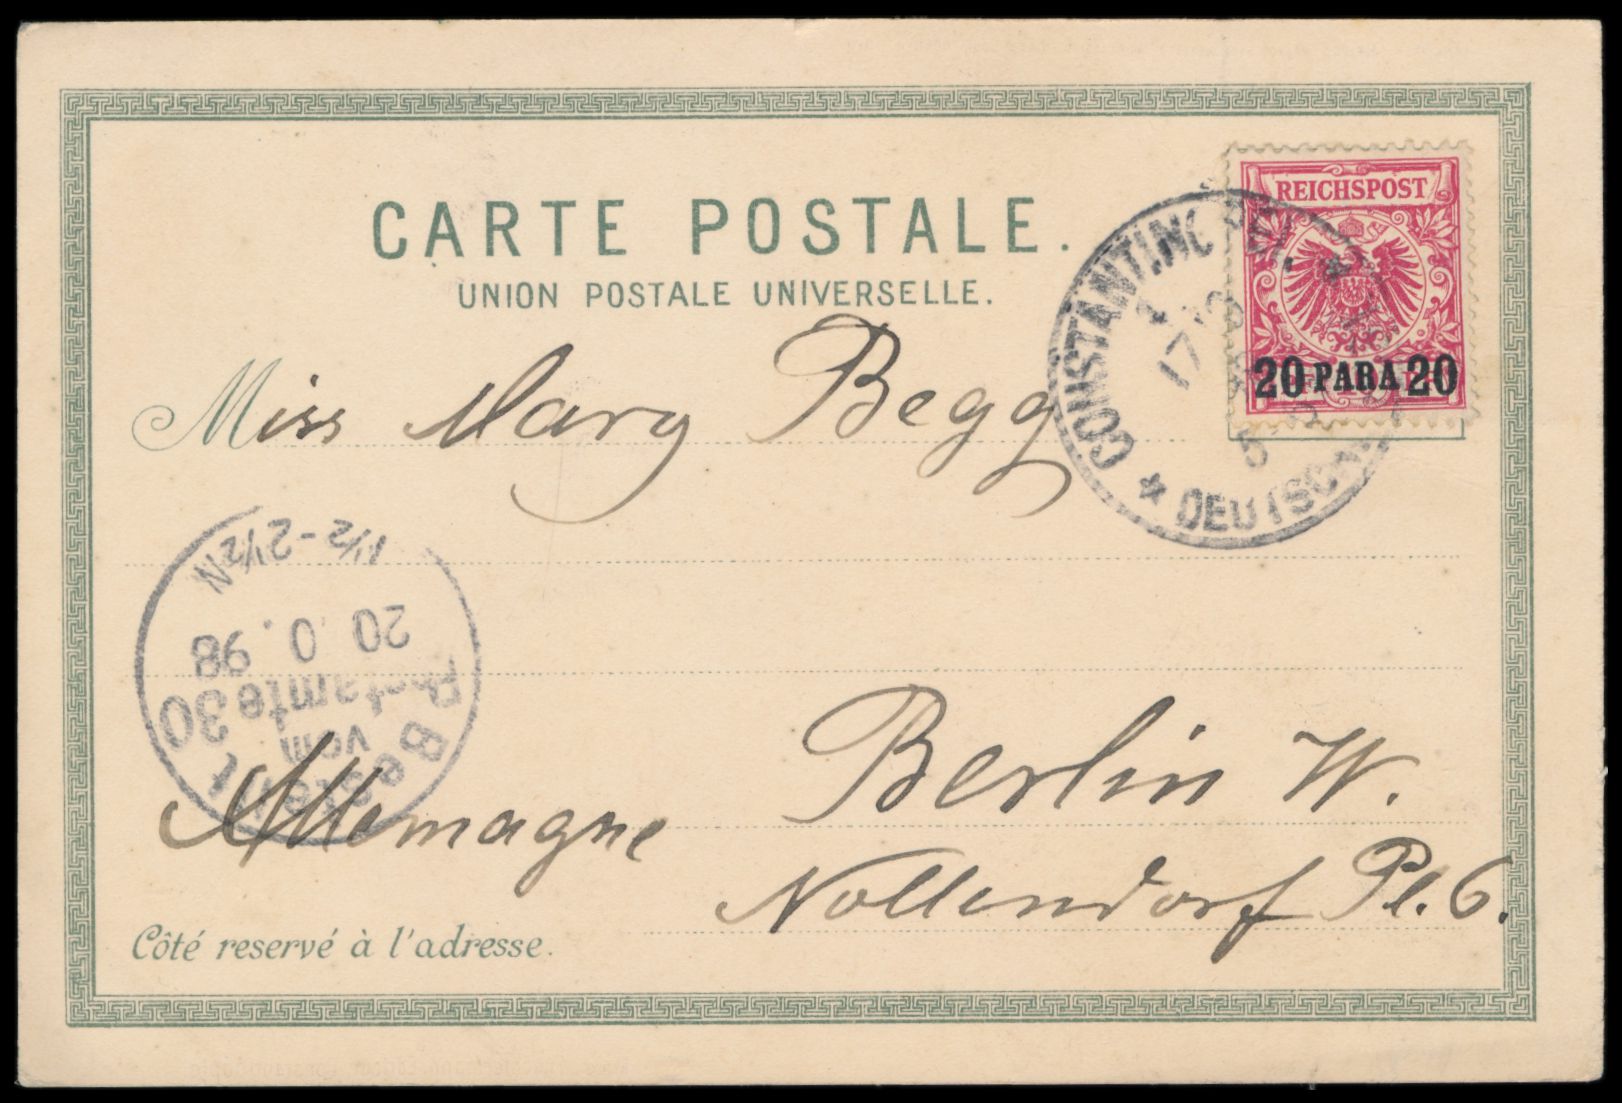 CARTE POSTALE.
UNION POSTALE UNIVERSELLE.
REICHSPOST
20 PARA 20
CONSTANTINOPEL
17
5
DEUTSCHE
Miss Mary Begg
1½-2½N
20. 0. 98
Postamte 30
vom
Bestellt
Berlin W.
Allemagne
Nollendorf Pl. 6.
Côté reservé à l'adresse.